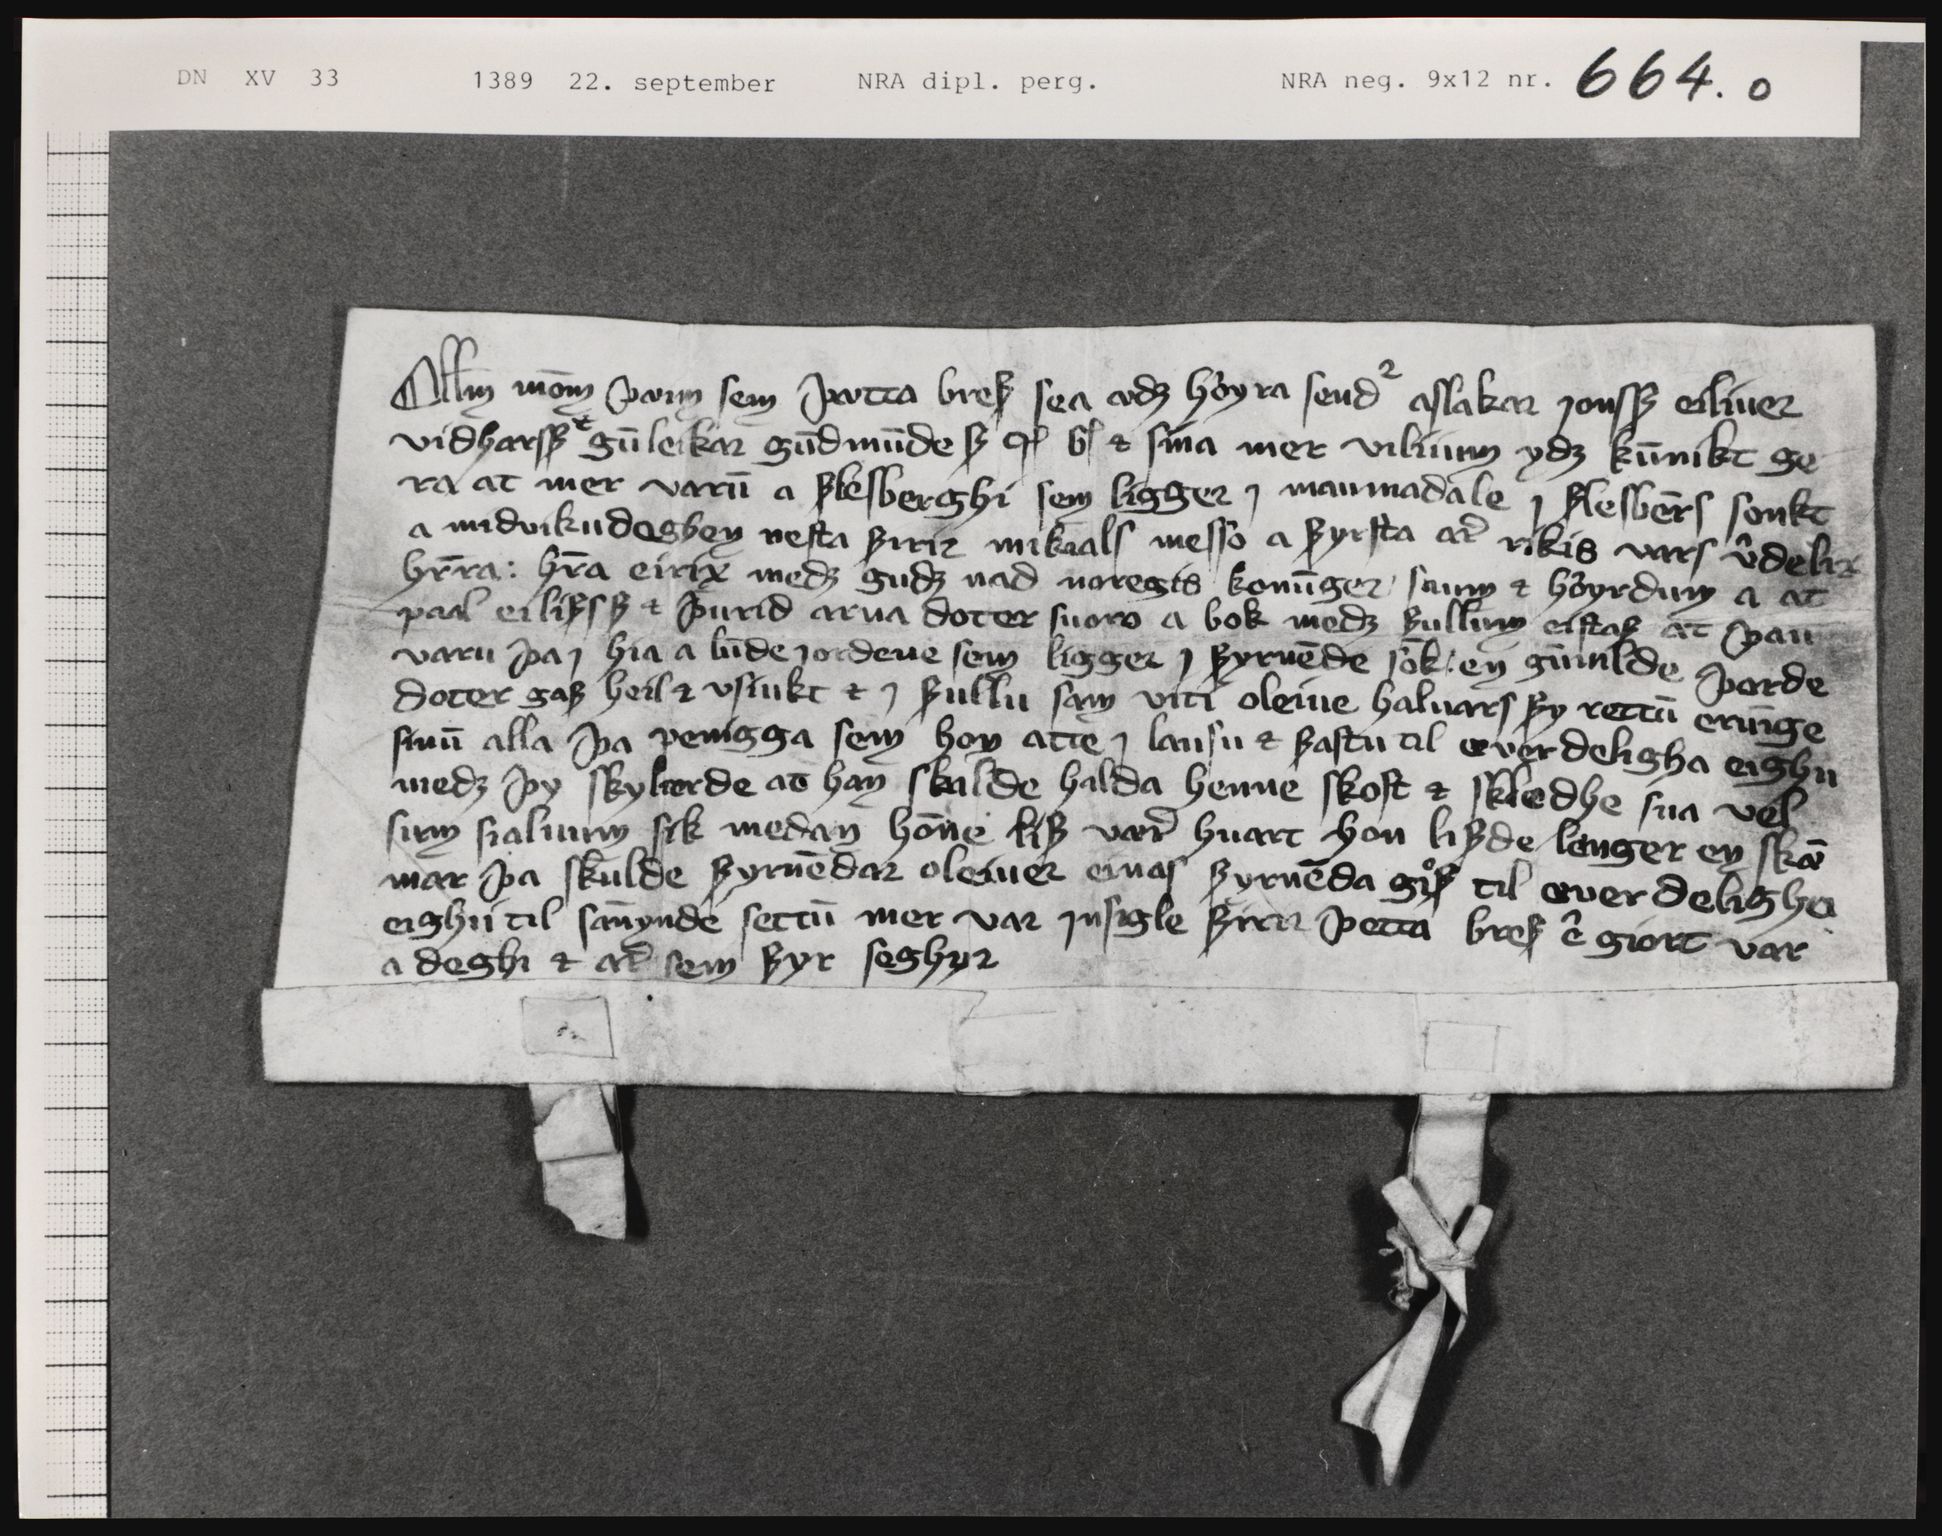 DN XV 33 1389 22. september NRA dipl. perg. NRA neg. 9x12 nr. 664.0
Ollm̄ mōm þøim sem þætta bref sea ædʒ høyra send² aslakar jonsſ eiliuer
vidharsſ ⁊ gūleikar gūdmūde ſ qͥ gͥ ⁊ sina mer vilium ydʒ kūnikt ge
ra at mer varū a flesberghi sem ligger j maunadale j flesbērs sonkt
a midvikudeghen nesta firir mikials messo a fyrsta ar̄ rikis vars v̄delix
hr̄ra: hr̄a eirix medʒ gudʒ nad noregis konūger saum ⁊ høyrdum a at
paal eilifsſ ⁊ þurid arna doter suoro a bok medʒ fullum eistaf at þau
varu þa j hia a lūde jordene sem ligger j fyruēde sōk: en gūnilde þorde
doter gaf heil ⁊ vsiukt ⁊ j fullu sam viti oleiue haluars fy rettū erūige
sinū alla þa penīgga sem hon atte j lausu ⁊ fastu til æverdeligha eighu
medʒ þy skylærde at han skulde halda henne skost ⁊ sklædhe sua vel
sum sialuum sik medan hōne lif var̄ huart hon lifde lenger en skā
mar þa skulde fyruēdar oleiuer einas fyruēda giſ til æverdeligha
eighu til sānynde settū mer var jnsigle firir þetta bref ē giort var
a deghi ⁊ ar̄ sem fyr seghyr